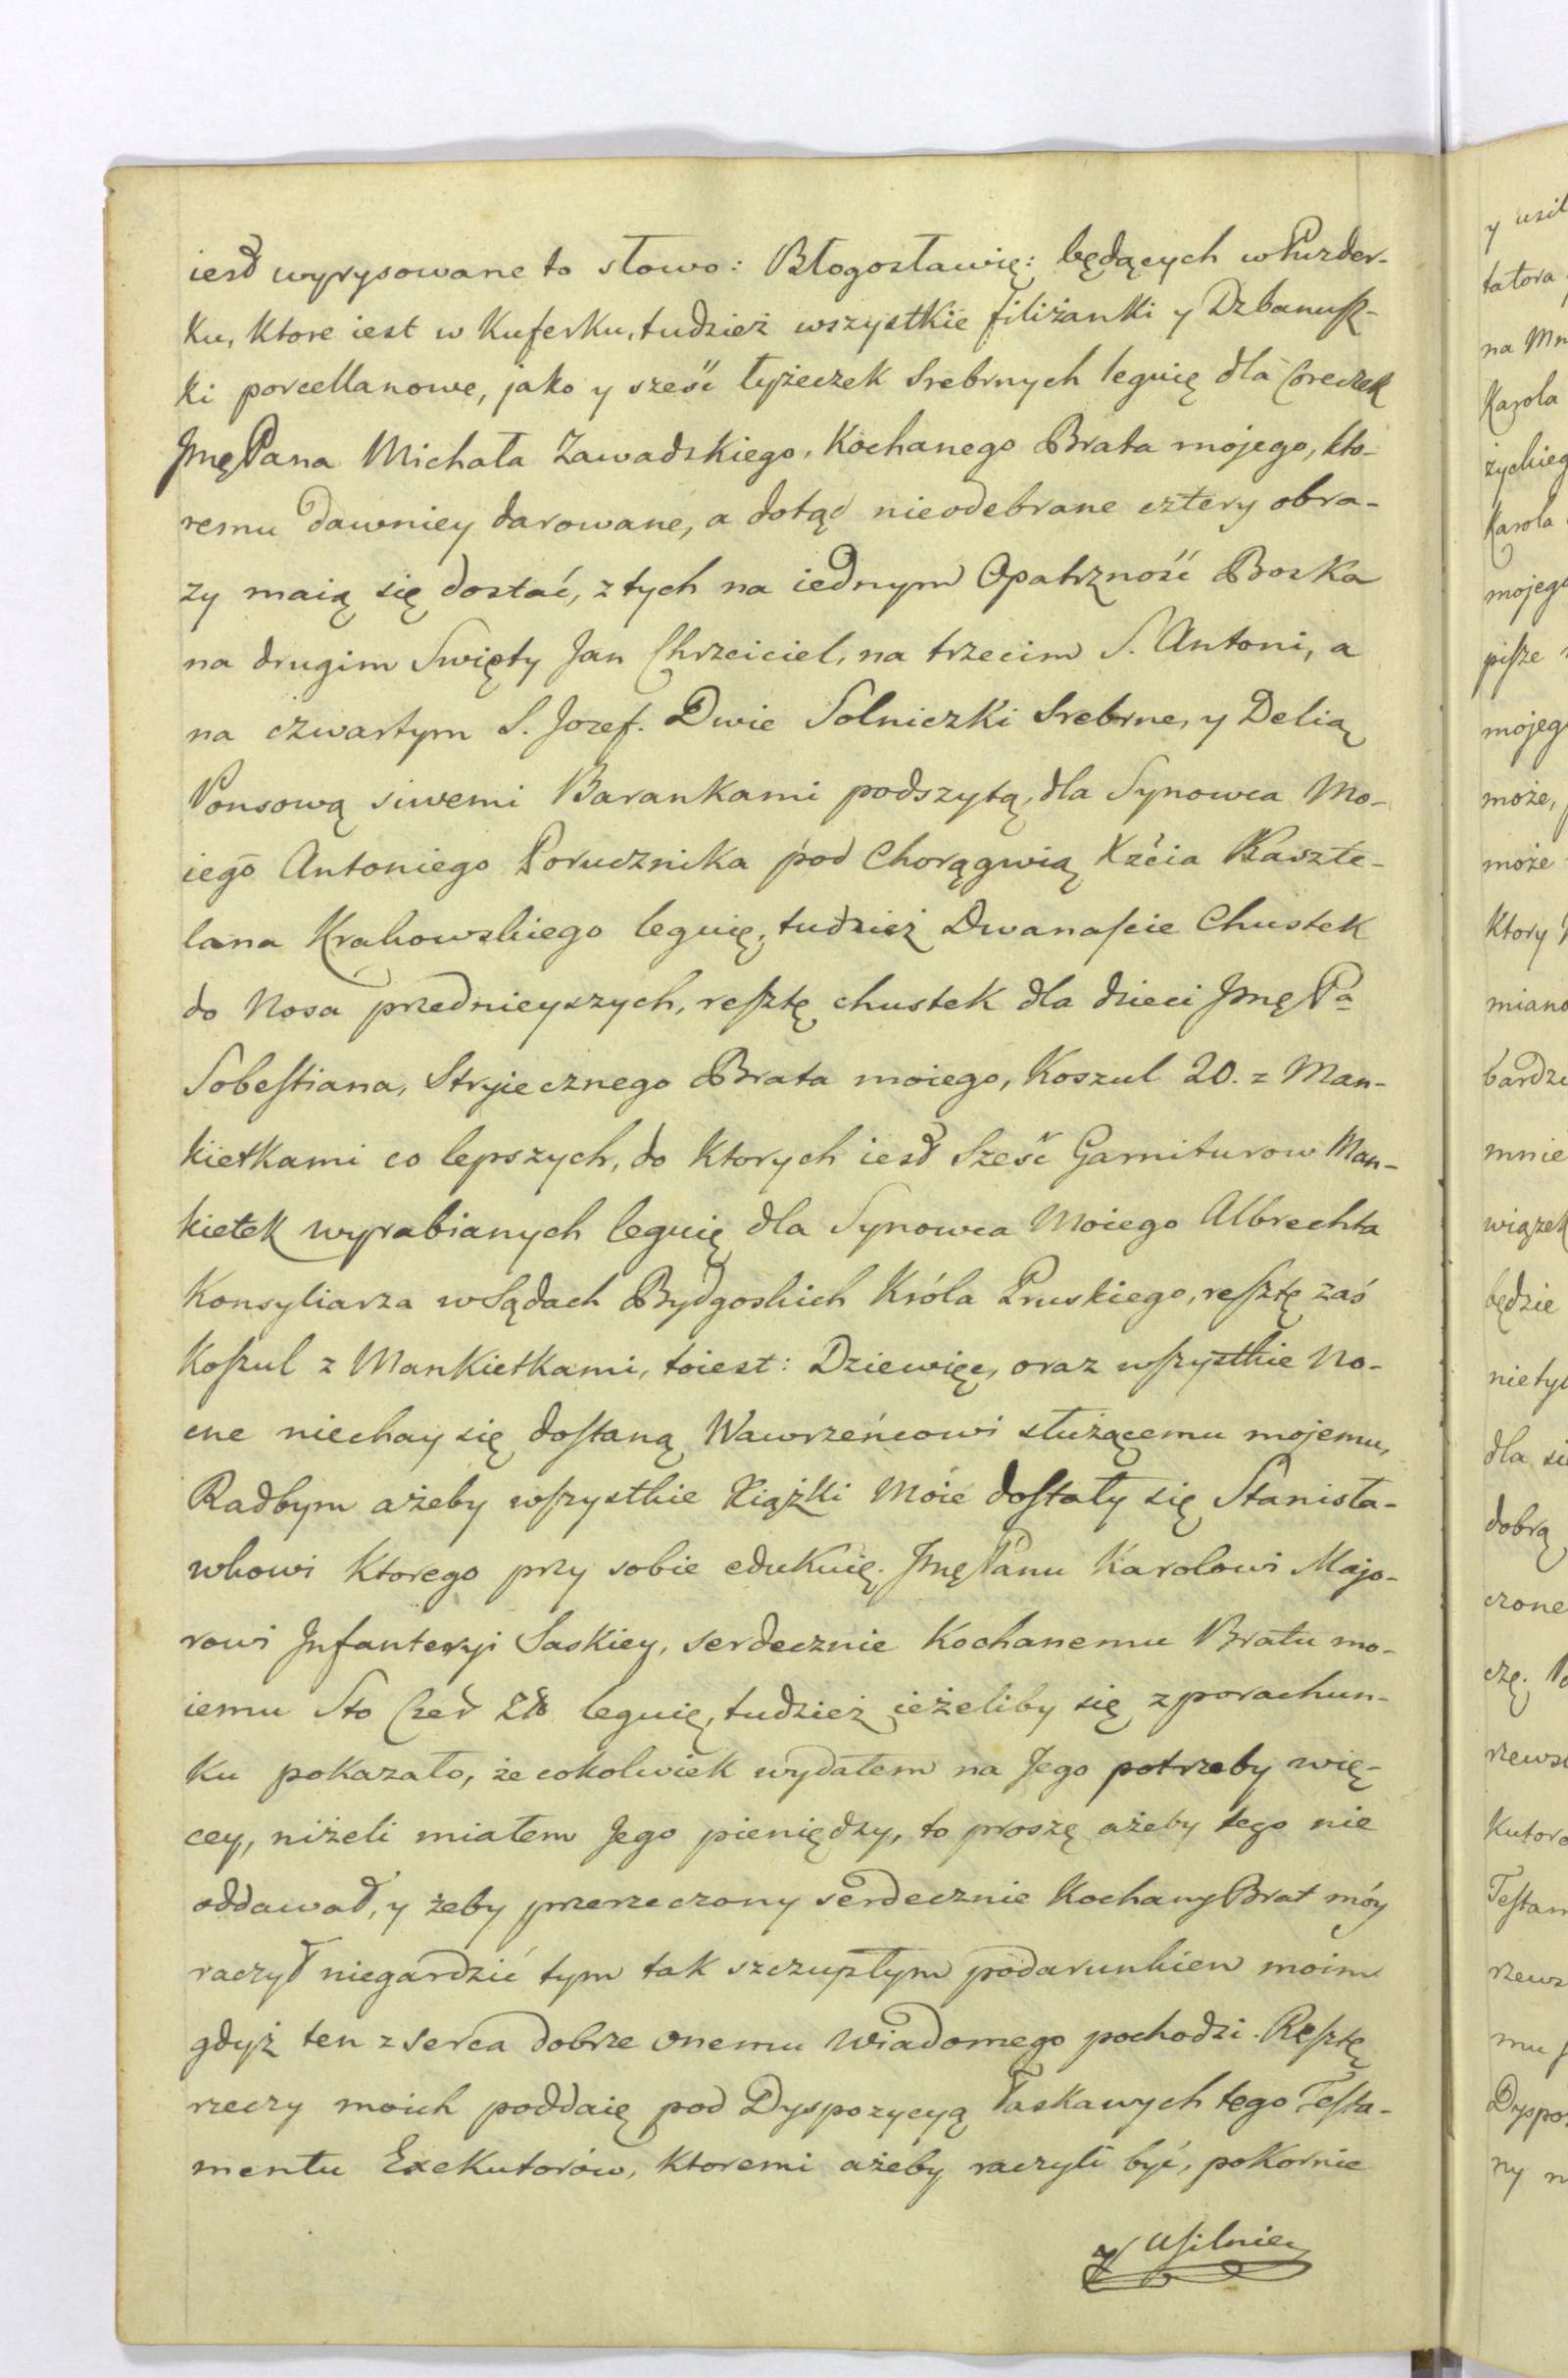 iest wyrysowane to słowo: Błogosławię: będących w Puzder-
ku, ktore iest w Kuferku, tudzież wszystkie filiżanki y Dzbanusz-
ki porcellanowe, jako y sześć łyżeczek srebrnych leguię dla Coreczek
Jmę Pana Michała Zawadzkiego, Kochanego Brata mojego, kto-
remu dawniey darowane, a dotąd nieodebrane cztery obra-
zy maią się dostać, z tych na iednym Opatrzność Boska
na drugim Swięty Jan Chrzciciel, na trzecim S. Antoni, a
na czwartym S. Jozef. Dwie Solniczki srebrne, y Delią
Ponsową siwemi Barankami podszytą, dla Synowca Mo-
iego Antoniego Porucznika pod Chorągwią Xcia Kaszte-
lana Krakowskiego leguię, tudzież Dwanaście Chustek
do Nosa przednieyszych, resztę chustek dla dzieci Jmę Pa
Sobestiana, Stryiecznego Brata moiego, Koszul 20. z Man-
kietkami co lepszych, do ktorych iest sześć Garniturow Man-
kietek wyrabianych leguię dla Synowca Moiego Albrechta
Konsyliarza w Sądach Bydgoskich Króla Pruskiego, resztę zaś
Koszul z Mankietkami, toiest: Dziewięć, oraz wszystkie No-
cne niechay się dostaną Wawrzeńcowi służącemu mojemu,
Radbym ażeby wszystkie Xiążki Moie dostały się Stanisła-
wkowi ktorego przy sobie edukuię. Jmę Panu Karolowi Majo-
rowi Jnfanteryi Saskiey, serdecznie Kochanemu Bratu mo-
iemu Sto Czer Zł. leguię, tudzież ieżeliby się z porachun-
ku pokazało, że cokolwiek wydałem na Jego potrzeby wię-
cey, niżeli miałem Jego pieniędzy, to proszę ażeby tego nie
oddawał, y żeby przerzeczony serdecznie Kochany Brat móy
raczył niegardzić tym tak szczupłym podarunkiem moim
gdyż ten z serca dobrze onemu wiadomego pochodzi. Resztę
rzeczy moich poddaię pod Dyspozycyą łaskawych tego Testa-
mentu Exekutorów, ktoremi ażeby raczyli być, pokornie
y usilnie
y usil
tatora
na Mn
Karola
życkieg
Karola
mojego
pisze
mojego
może,
może
ktory
miano
bardzo
mnie
wiązek
będzie
nietyl
dla si
dobrą
czone
czę.
rzews
kutoro
Testam
rzews
mu
Dyspo
ny